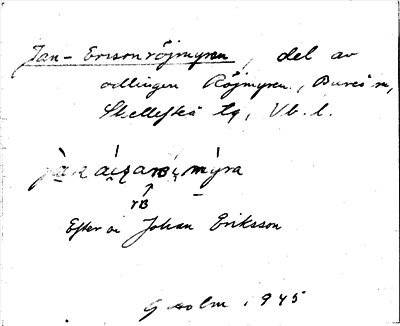 Jan-Ersonröjmyren, del av
odlingen Röjmyren, Bureå sn,
Skellefteå tg, Vb. l.
rɞ
Efter ä Johan Eriksson
G Holm 1945